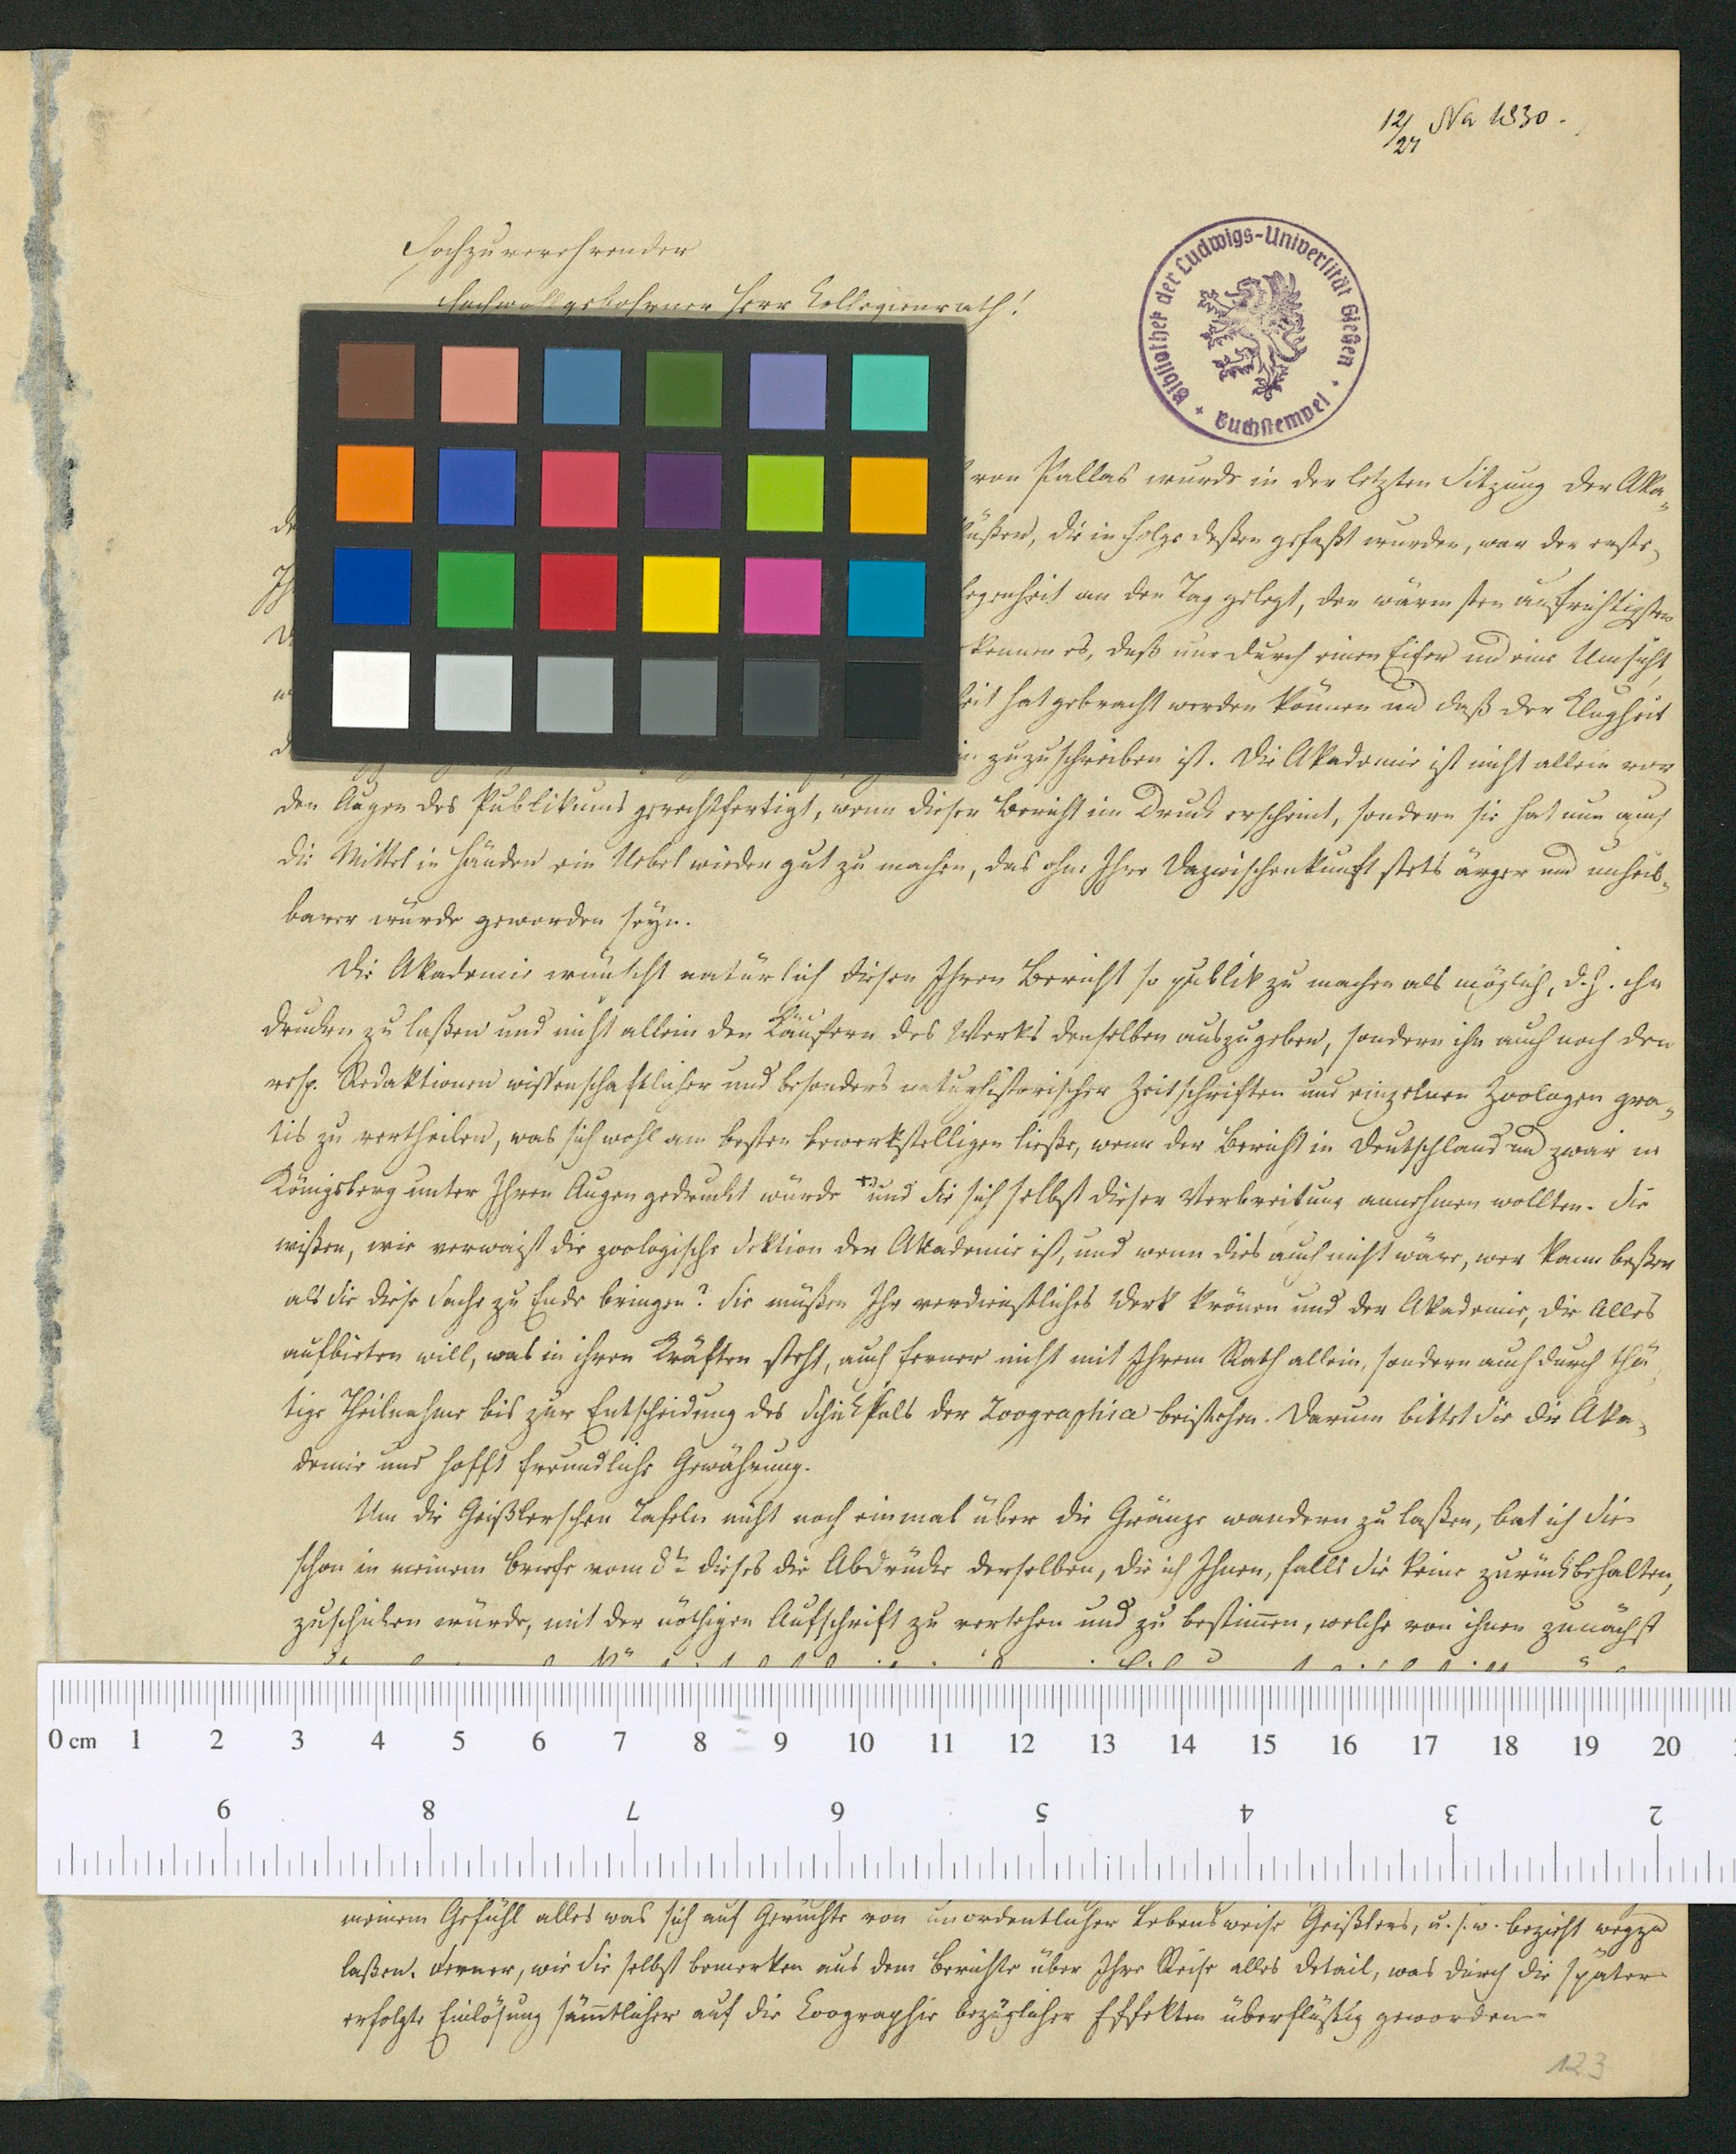 12/24 Na 1830.
Hochzuverehrender
Hochwohlgebohrner Herr Collegienrath!
Bibliothek der Ludwigs-Universität Gießen
Buchstempel
von Pallas wurde in der letzten Sitzung der Aka-
die in Folge deßen gefaßt wurden, war der erste,
an den Tag gelegt, den wärmsten aufrichtigsten
es, daß nur durch einen Eifer und eine Umsicht,
hat gebracht werden können und daß der Klugheit
zuzuschreiben ist. Die Akademie ist nicht allein vor
den Augen des Publikums gerechtfertigt, wenn dieser Bericht im Druck erscheint, sondern sie hat nun auch
die Mittel in Händen ein Uebel wieder gut zu machen, das ohne Ihre Dazwischenkunft stets ärger und unheil-
barer würde geworden seyn.
Die Akademie wünscht natürlich diesen Ihren Bericht so publik zu machen als möglich, d. h. ihn
drucken zu laßen und nicht allein den Käufern des Werks denselben auszugeben, sondern ihn auch noch den
resp. Redaktionen wissenschaftlicher und besonders naturhistorischer Zeitschriften und einzelnen Zoologen gra-
tis zu vertheilen, was sich wohl am besten bewerkstelligen ließe, wenn der Bericht in Deutschland und zwar in
Königsberg unter Ihren Augen gedruckt würde und Sie sich selbst dieser Verbreitung annehmen wollten. Sie
wißen, wie verwaist die zoologische Sektion der Akademie ist, und wenn dies auch nicht wäre, wer kann beßer
als Sie diese Sache zu Ende bringen? Sie müßen Ihr verdienstliches Werk krönen und der Akademie, die Alles
aufbieten will, was in ihren Kräften steht, auch ferner nicht mit Ihrem Rath allein, sondern auch durch thä-
tige Theilnahme bis zur Entscheidung des Schicksals der Zoographica beistehen. Darum bittet Sie die Aka-
demie und hofft freundliche Gewährung.
Um die Geißlerschen Tafeln nicht noch einmal über die Gränze wandern zu laßen, bat ich Sie
schon in meinem Briefe vom 8t dieses die Abdrücke derselben, die ich Ihnen, falls Sie keine zurückbehalten,
zuschicken würde, mit der nöthigen Aufschrift zu versehen und zu bestimmen, welche von ihnen zunächst
0 cm 1 2 3 4 5 6 7 8 9 10 11 12 13 14 15 16 17 18 19 20
9 8 7 6 5 4 3 2
meinem Gefühl alles was sich auf Gerüchte von unordentlicher Lebensweise Geißlers, u. s. w. bezieht wegzu
laßen. Ferner, wie Sie selbst bemerken aus dem Berichte über Ihre Reise alles Detail, was durch die später
erfolgte Einlösung sämtlicher auf die Zoographie bezüglicher Effekten überflüßig geworden
123